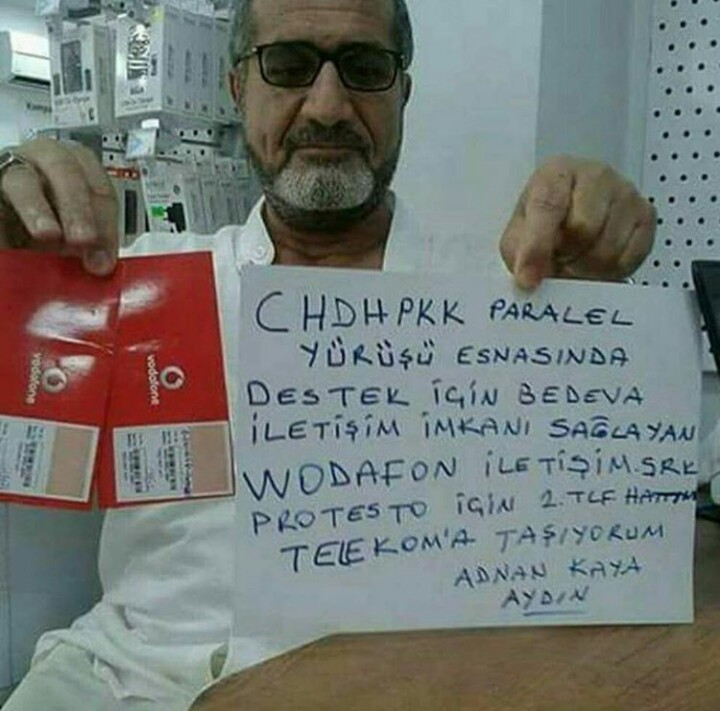 vodafone
vodafone
CHDHPKK PARALEL
YÜRÜŞÜ ESNASINDA
DESTEK İÇİN BEDEVA
İLETİŞİM İMKANI SAĞLAYAN
WODAFON İLETİŞİM.SRK
PROTESTO İÇİN 2.TLF HATTIM
TELEKOM'A TAŞIYORUM
ADNAN KAYA
AYDIN